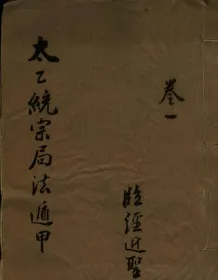 卷一
經近聖
太乙統宗局法遁甲